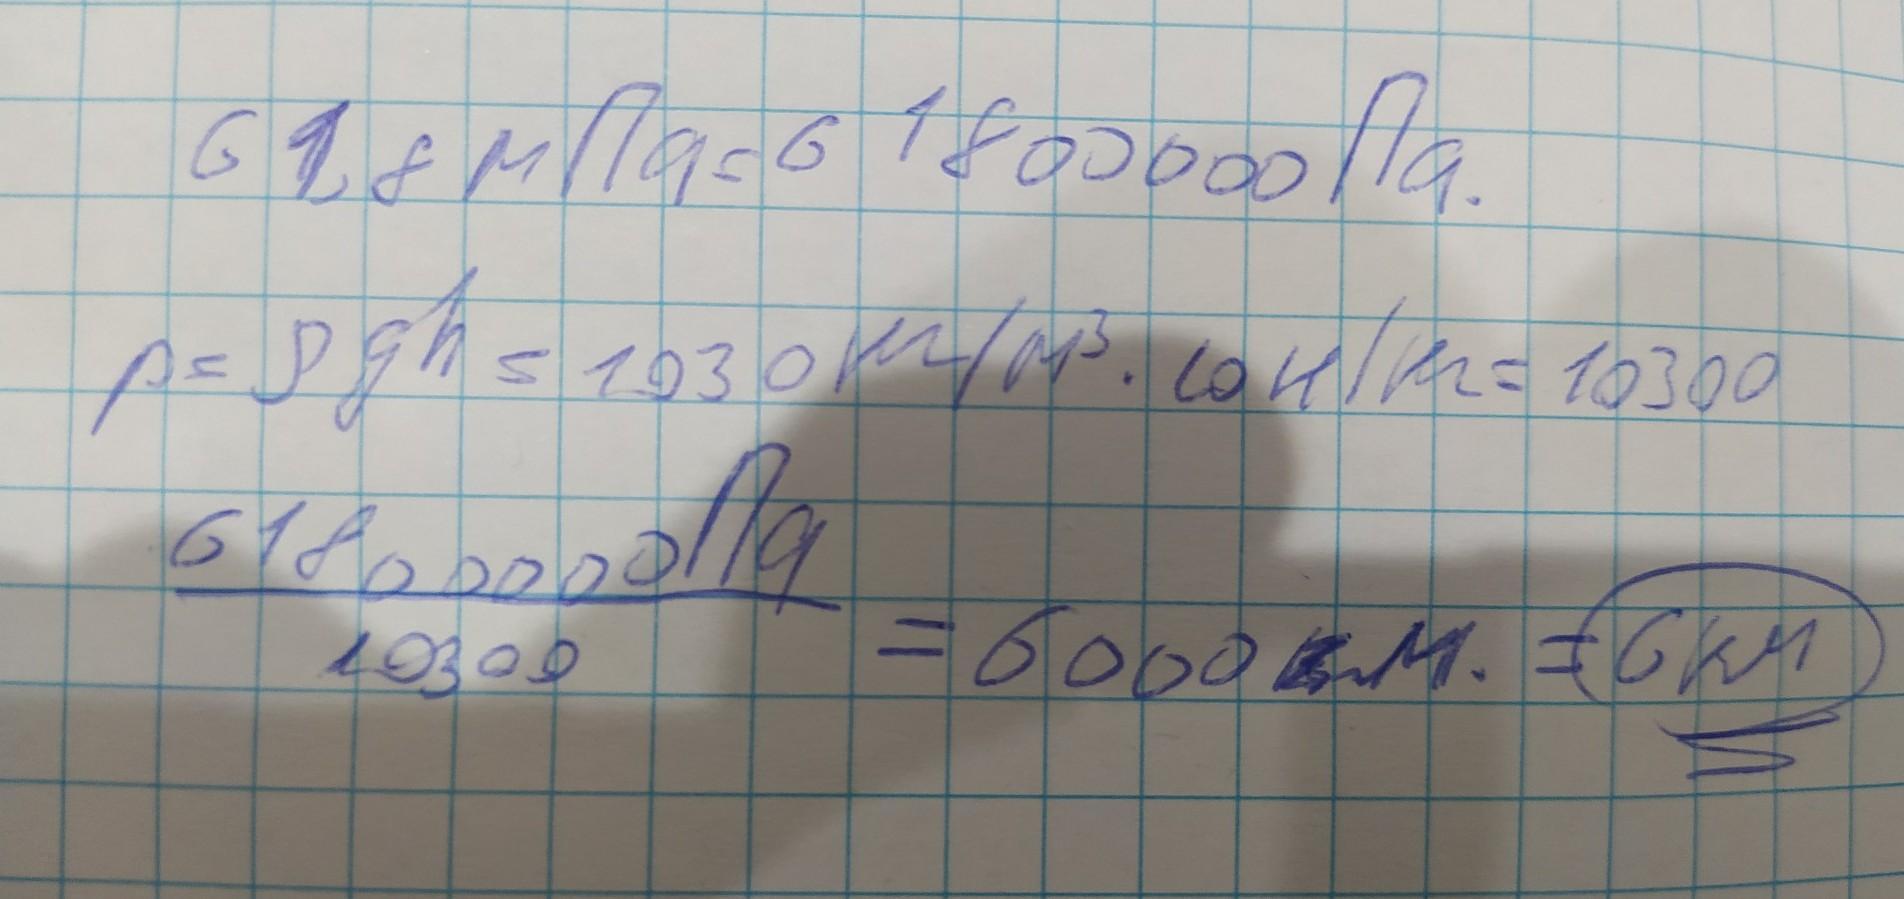 61,8 мПа = 61800000 Па.
p = ρgh = 1030 кг/м³ · 10 н/кг = 10300
61800000 Па
10300
= 6000 м. = 6 км